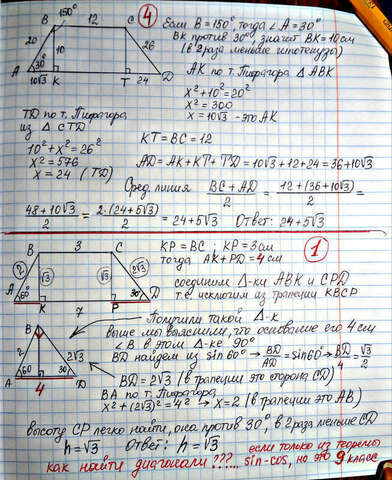 ④
Если B = 150°, тогда ∠A = 30°
BK против 30°, значит BK = 10см
(в 2 раза меньше гипотенузы)
B 150° 12 C
20 10 26
A 30° 10√3 K T 24 D
AK по т. Пифагора △ ABK
x² + 10² = 20²
x² = 300
x = 10√3 - это AK
TD по т. Пифагора
из △ CTD
10² + x² = 26²
x² = 576
x = 24 (TD)
KT = BC = 12
AD = AK + KT + TD = 10√3 + 12 + 24 = 36 + 10√3
Сред. линия (BC + AD)/2 = (12 + (36 + 10√3))/2 =
(48 + 10√3)/2 = 2·(24 + 5√3)/2 = 24 + 5√3 Ответ: 24 + 5√3
①
B 3 C
2 √3 √3 2√3
A 60° K 7 P 30° D
KP = BC ; KP = 3см
тогда AK + PD = 4см
соединим △-ки ABK и CPD
т.е. исключим из трапеции KBCP
Получили такой △-к
выше мы выяснили, что основание его 4см
∠B в этом △-ке 90°
BD найдем из sin60° → BD/AD = sin60° → BD/4 = √3/2
B
2 2√3
A 60 30 D
4
BD = 2√3 (в трапеции это сторона CD)
BA по т. Пифагора
x² + (2√3)² = 4² → x = 2 (в трапеции это AB)
высоту CP легко найти, она против 30°, в 2 раза меньше CD
h = √3 Ответ: h = √3
если только из теоремы
как найти диагонали???... sin-cos, но это 9 класс